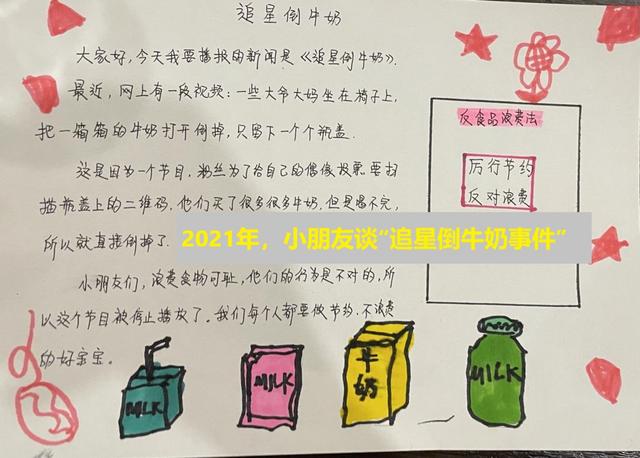 追星倒牛奶
大家好,今天我要播报的新闻是《追星倒牛奶》.
最近,网上有一段视频:一些大爷大妈坐在椅子上,
把一箱箱的牛奶打开倒掉,只留下一个个瓶盖.
这是因为一个节目.粉丝为了给自己的偶像投票.要扫
描瓶盖上的二维码.他们买了很多很多牛奶.但是喝不完,
所以就直接倒掉了.
2021年,小朋友谈“追星倒牛奶事件”
小朋友们,浪费食物可耻,他们的行为是不对的,所
以这个节目被停止播放了。我们每个人都要做节约.不浪费
的好宝宝。
反食品浪费法
厉行节约
反对浪费
MILK
MILK
牛
奶
MILK